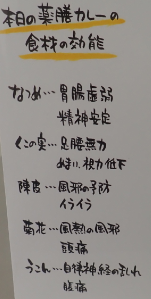 本日の薬膳カレーの
食材の効能
なつめ…胃腸虚弱
精神安定
くこの実…足腰無力
めまい、視力低下
陳皮…風邪の予防
イライラ
菊花…風熱の風邪
頭痛
うこん…自律神経のみだれ
腹痛